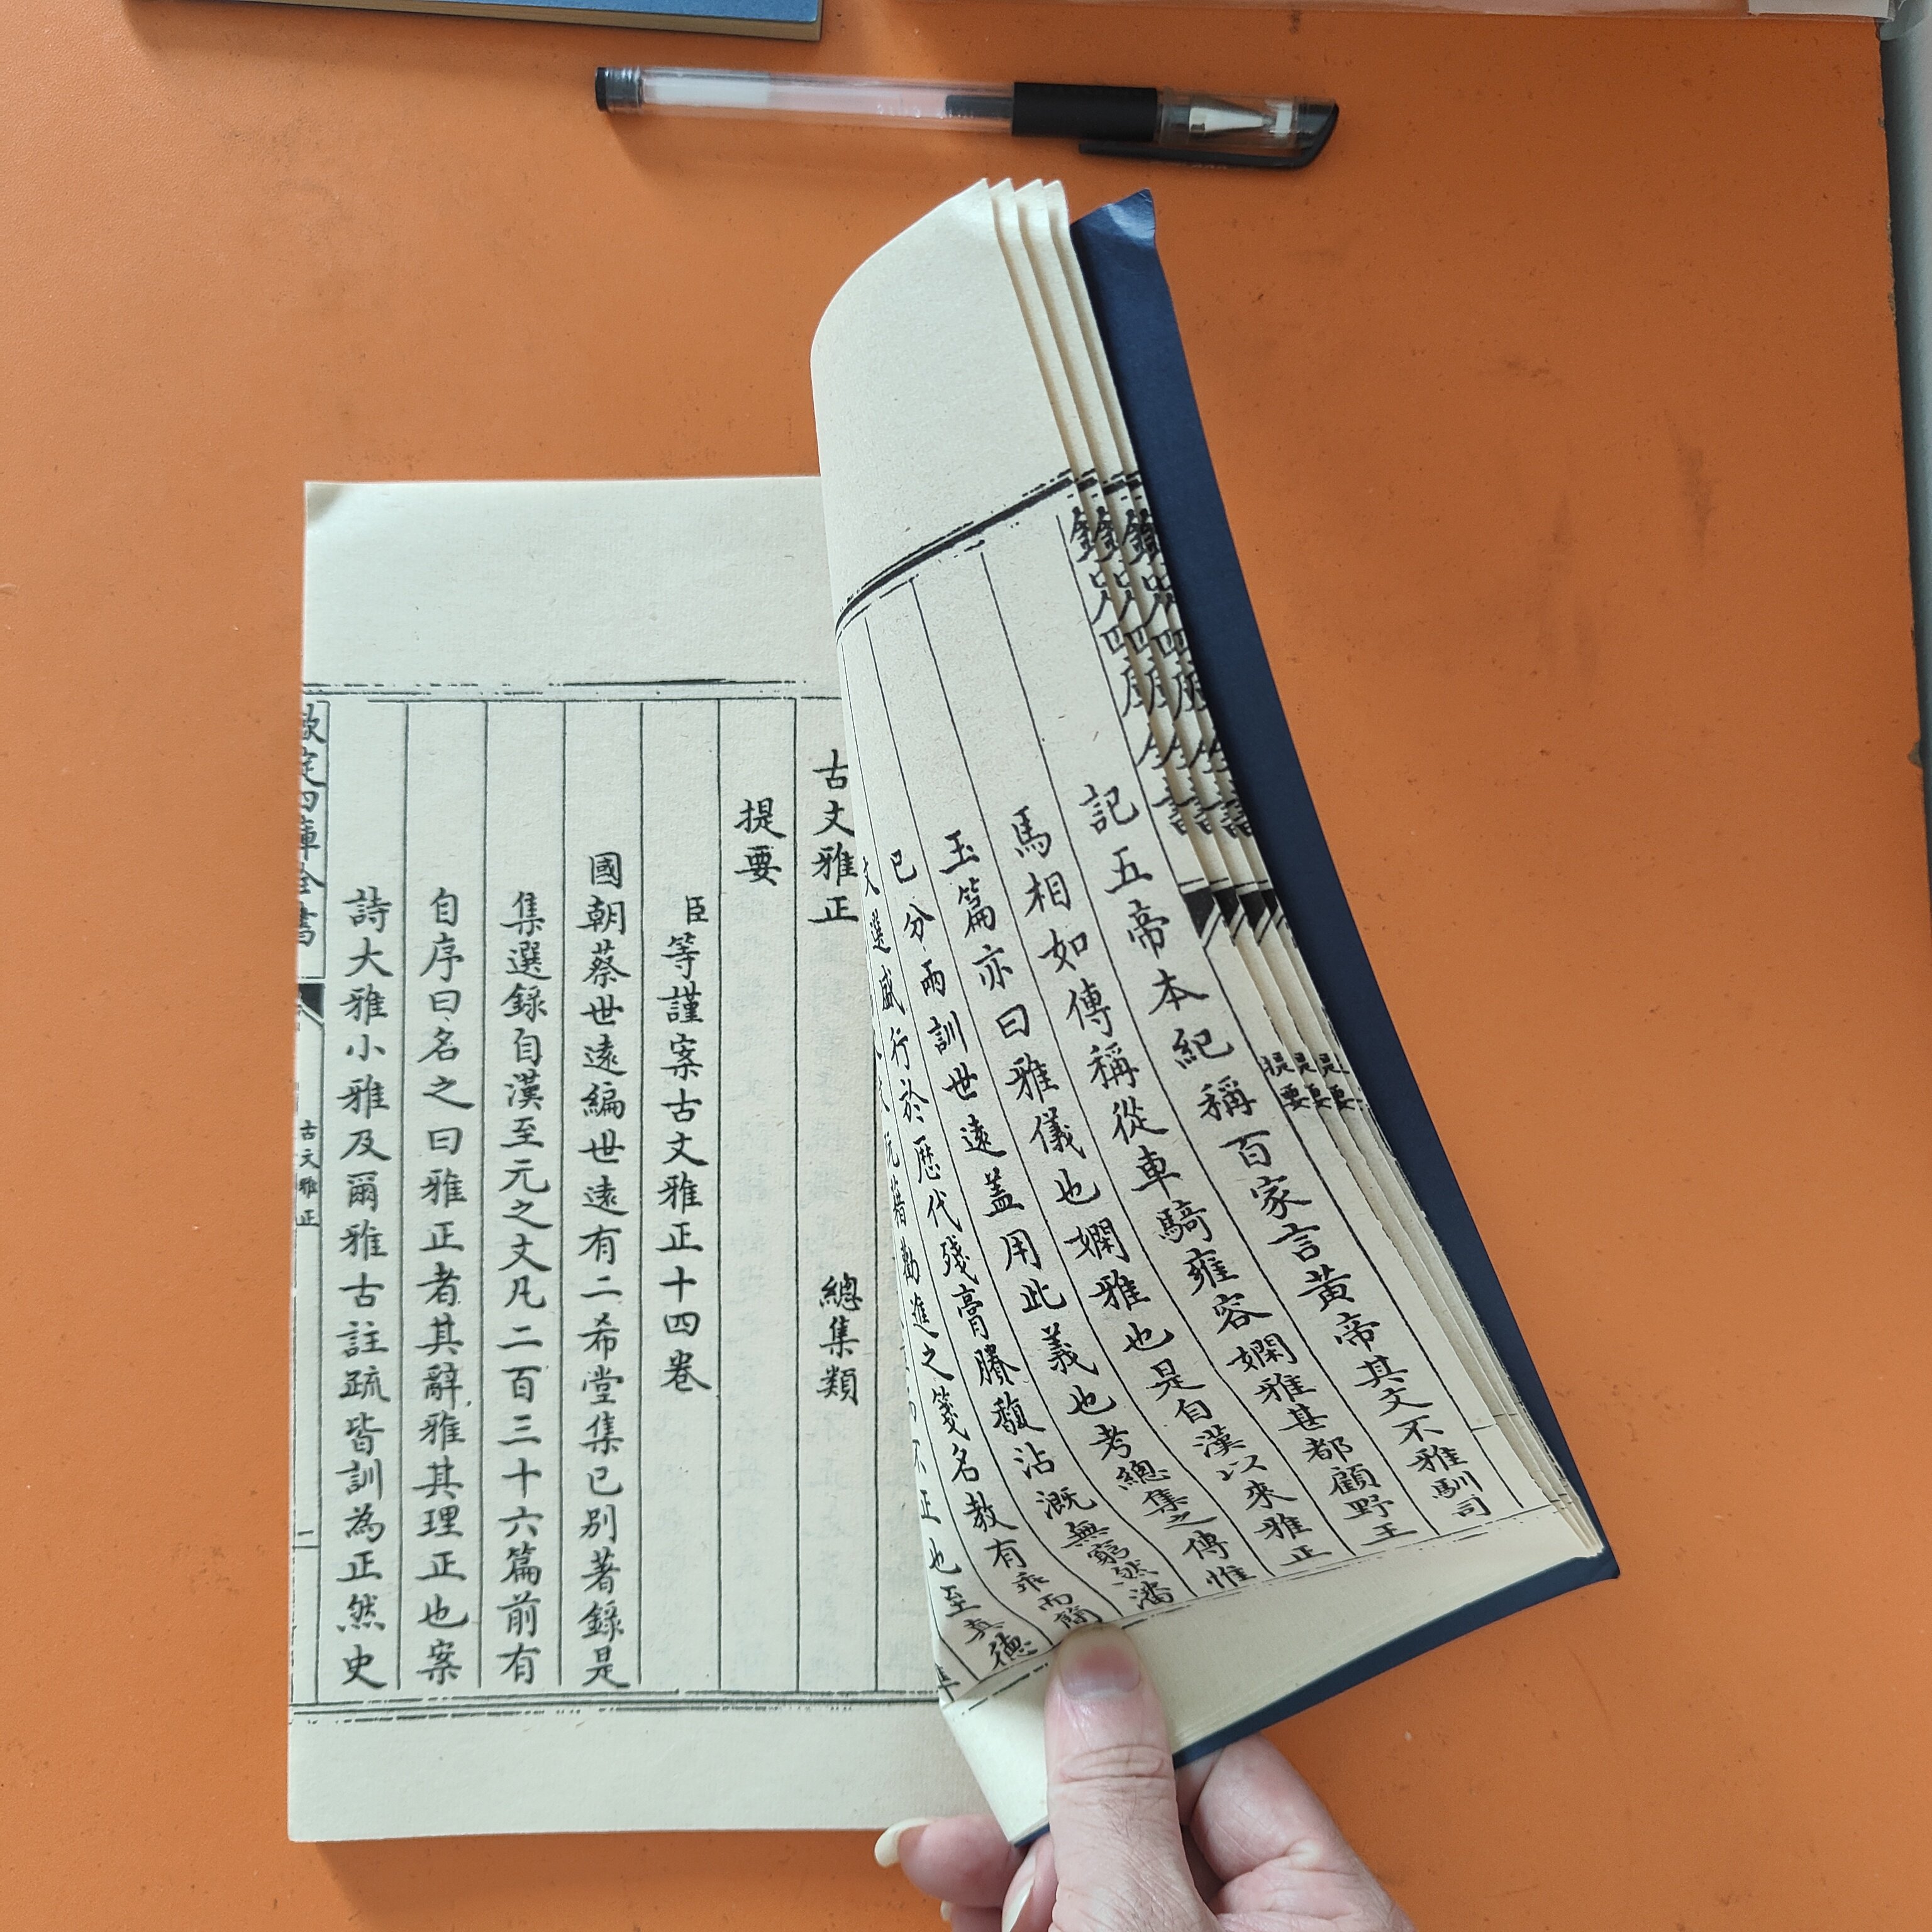 古文雅正 總集類
提要
臣等謹案古文雅正十四卷
國朝蔡世遠編世遠有二希堂集已別著錄是
集選錄自漢至元之文凡二百三十六篇前有
自序曰名之曰雅正者其辭雅其理正也案
詩大雅小雅及爾雅古註疏皆訓為正然史
欽定四庫全書
古文雅正
記五帝本紀稱百家言黃帝其文不雅馴司
馬相如傳稱從車騎雍容嫻雅甚都顧野王
玉篇亦曰雅儀也嫻雅也是自漢以來雅正
已分兩訓世遠蓋用此義也考總集之傳惟
文選盛行於歷代殘膏賸馥沾溉無窮然潘
籍勸進之箋名教有乖而簡
正也至真德
提要